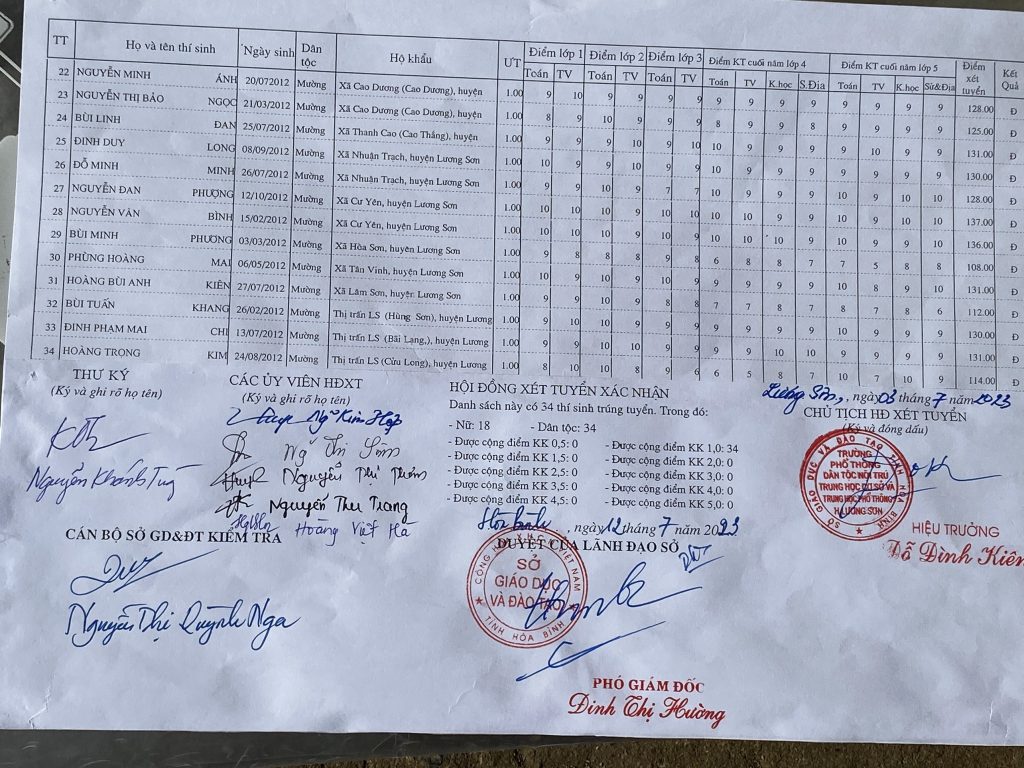 TT Họ và tên thí sinh Ngày sinh Dân tộc Hộ khẩu ƯT Điểm lớp 1 Điểm lớp 2 Điểm lớp 3 Điểm KT cuối năm lớp 4 Điểm KT cuối năm lớp 5 Điểm xét tuyển Kết Quả
Toán TV Toán TV Toán TV Toán TV K.học S.Địa Toán TV K.học Sử&Địa
22 NGUYỄN MINH ÁNH 20/072012 Mường Xã Cao Dương (Cao Dương), huyện 1.00 9 10 9 9 9 9 9 9 9 9 9 9 9 9 128.00 Đ
23 NGUYỄN THỊ BẢO NGỌC 21/03/2012 Mường Xã Cao Dương (Cao Dương), huyện 1.00 8 9 10 9 9 9 8 9 9 8 9 9 9 9 125.00 Đ
24 BÙI LINH ĐAN 25/07/2012 Mường Xã Thanh Cao (Cao Thắng), huyện 1.00 9 9 9 10 9 10 10 9 9 9 9 10 9 9 131.00 Đ
25 ĐINH DUY LONG 08/09/2012 Mường Xã Nhuận Trạch, huyện Lương Sơn 1.00 10 9 10 9 9 9 10 9 9 9 9 9 9 9 130.00 Đ
26 ĐỖ MINH MINH 26/07/2012 Mường Xã Nhuận Trạch, huyện Lương Sơn 1.00 9 9 10 9 7 7 10 9 9 9 10 9 10 10 128.00 Đ
27 NGUYỄN ĐAN PHƯỢNG 12/10/2012 Mường Xã Cư Yên, huyện Lương Sơn 1.00 10 10 10 9 10 10 10 10 9 9 10 10 10 9 137.00 Đ
28 NGUYỄN VĂN BÌNH 15/02/2012 Mường Xã Cư Yên, huyện Lương Sơn 1.00 10 10 10 10 9 10 10 10 9 9 10 9 9 10 136.00 Đ
29 BÙI MINH PHƯƠNG 03/03/2012 Mường Xã Hòa Sơn, huyện Lương Sơn 1.00 9 8 8 8 8 9 6 8 8 7 7 5 8 8 108.00 Đ
30 PHÙNG HOÀNG MAI 06/05/2012 Mường Xã Tân Vinh, huyện Lương Sơn 1.00 10 9 10 9 10 9 9 9 9 9 10 8 9 10 131.00 Đ
31 HOÀNG BÙI ANH KIÊN 27/07/2012 Mường Xã Lâm Sơn, huyện Lương Sơn 1.00 9 10 10 8 8 8 7 7 8 7 8 7 8 6 112.00 Đ
32 BÙI TUẤN KHANG 26/02/2012 Mường Thị trấn LS (Hùng Sơn), huyện Lương 1.00 9 9 10 9 9 10 9 9 9 9 10 9 9 9 130.00 Đ
33 ĐINH PHẠM MAI CHI 13/07/2012 Mường Thị trấn LS (Bãi Lạng,), huyện Lương 1.00 9 10 10 9 9 9 9 9 10 10 9 9 9 9 131.00 Đ
34 HOÀNG TRỌNG KIM 24/08/2012 Mường Thị trấn LS (Cửu Long,), huyện Lương 1.00 8 10 10 8 9 6 6 5 8 7 10 7 10 9 114.00 Đ
THƯ KÝ
(Ký và ghi rõ họ tên)
Nguyễn Khánh Tùng
CÁC ỦY VIÊN HĐXT
(Ký và ghi rõ họ tên)
Ng~ Kim Hợp
Ng~ Thị Sim
Nguyễn Thị Thơm
Nguyễn Thu Trang
Hoàng Việt Hà
HỘI ĐỒNG XÉT TUYỂN XÁC NHẬN
Danh sách này có 34 thí sinh trúng tuyển. Trong đó:
- Nữ: 18 - Dân tộc: 34
- Được cộng điểm KK 0,5: 0 - Được cộng điểm KK 1,0: 34
- Được cộng điểm KK 1,5: 0 - Được cộng điểm KK 2,0: 0
- Được cộng điểm KK 2,5: 0 - Được cộng điểm KK 3,0: 0
- Được cộng điểm KK 3,5: 0 - Được cộng điểm KK 4,0: 0
- Được cộng điểm KK 4,5: 0 - Được cộng điểm KK 5,0: 0
Lương Sơn, ngày 03 tháng 7 năm 2023
CHỦ TỊCH HĐ XÉT TUYỂN
(Ký và đóng dấu)
SỞ GIÁO DỤC VÀ ĐÀO TẠO TỈNH HÒA BÌNH
TRƯỜNG
PHỔ THÔNG
DÂN TỘC NỘI TRÚ
TRUNG HỌC CƠ SỞ VÀ
TRUNG HỌC PHỔ THÔNG
H.LƯƠNG SƠN
HIỆU TRƯỞNG
Đỗ Đình Kiên
CÁN BỘ SỞ GD&ĐT KIỂM TRA
Nguyễn Thị Quỳnh Nga
Hòa Bình, ngày 12 tháng 7 năm 2023
DUYỆT CỦA LÃNH ĐẠO SỞ
SỞ
GIÁO DỤC
VÀ ĐÀO TẠO
TỈNH HÒA BÌNH
PHÓ GIÁM ĐỐC
Đinh Thị Hường